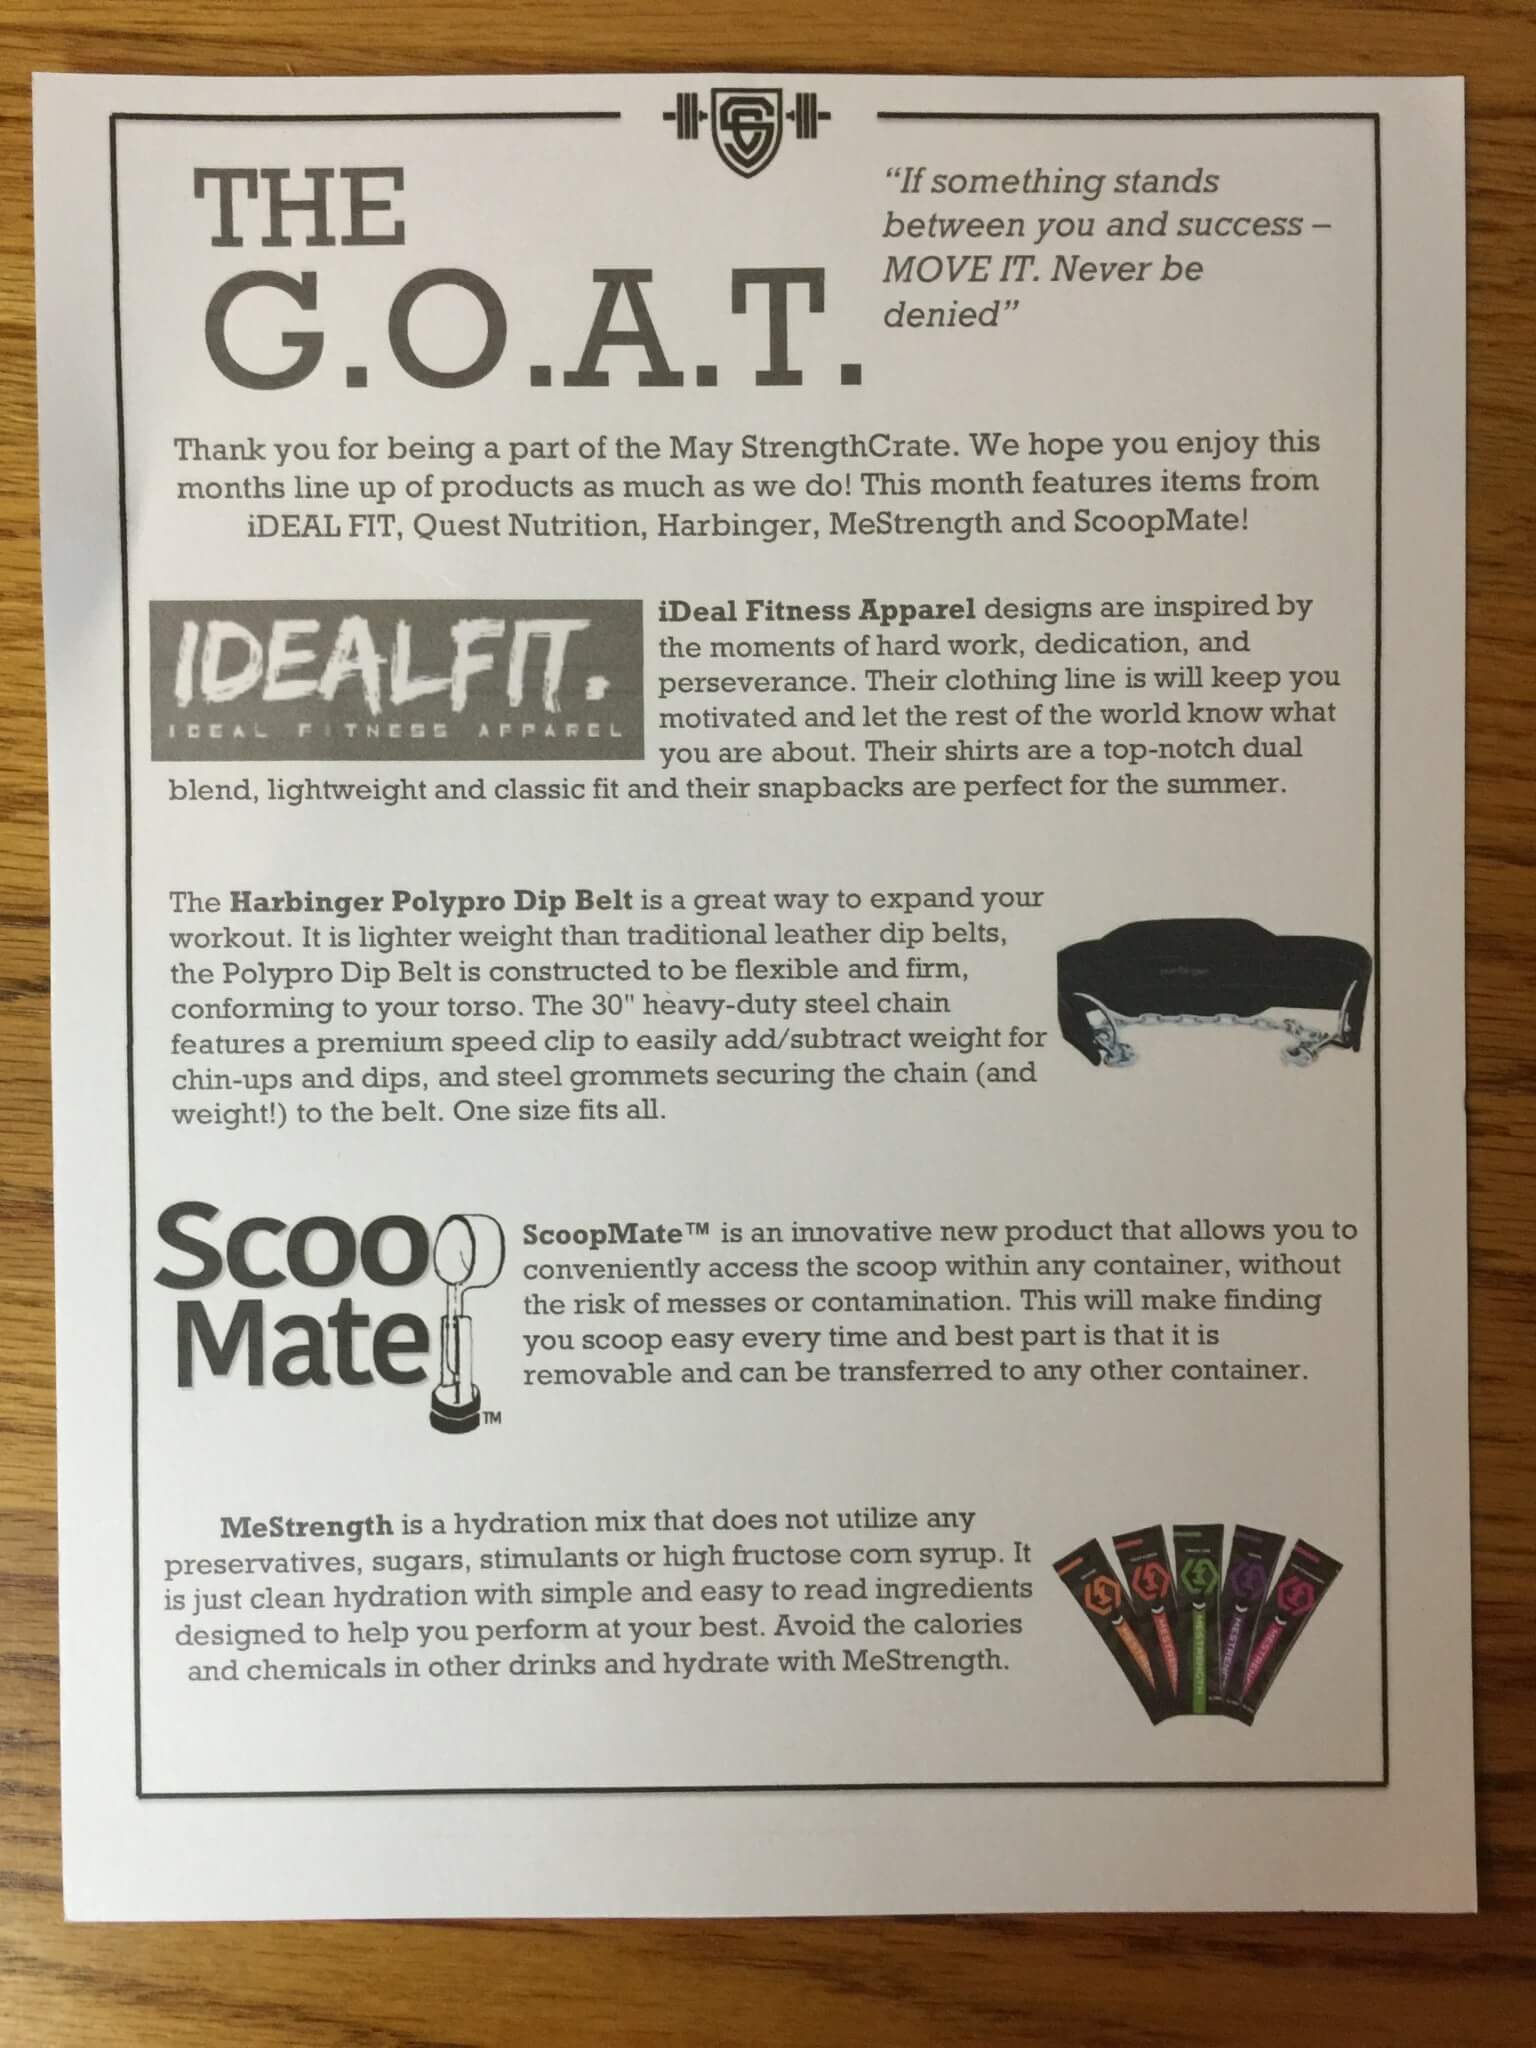 THE
G.O.A.T.
“If something stands
between you and success –
MOVE IT. Never be
denied”
Thank you for being a part of the May StrengthCrate. We hope you enjoy this
months line up of products as much as we do! This month features items from
iDEAL FIT, Quest Nutrition, Harbinger, MeStrength and ScoopMate!
IDEALFIT.
IDEAL FITNESS APPAREL
iDeal Fitness Apparel designs are inspired by
the moments of hard work, dedication, and
perseverance. Their clothing line is will keep you
motivated and let the rest of the world know what
you are about. Their shirts are a top-notch dual
blend, lightweight and classic fit and their snapbacks are perfect for the summer.
The Harbinger Polypro Dip Belt is a great way to expand your
workout. It is lighter weight than traditional leather dip belts,
the Polypro Dip Belt is constructed to be flexible and firm,
conforming to your torso. The 30" heavy-duty steel chain
features a premium speed clip to easily add/subtract weight for
chin-ups and dips, and steel grommets securing the chain (and
weight!) to the belt. One size fits all.
Scoop
Mate
TM
ScoopMate™ is an innovative new product that allows you to
conveniently access the scoop within any container, without
the risk of messes or contamination. This will make finding
you scoop easy every time and best part is that it is
removable and can be transferred to any other container.
MeStrength is a hydration mix that does not utilize any
preservatives, sugars, stimulants or high fructose corn syrup. It
is just clean hydration with simple and easy to read ingredients
designed to help you perform at your best. Avoid the calories
and chemicals in other drinks and hydrate with MeStrength.
MESTRENGTH